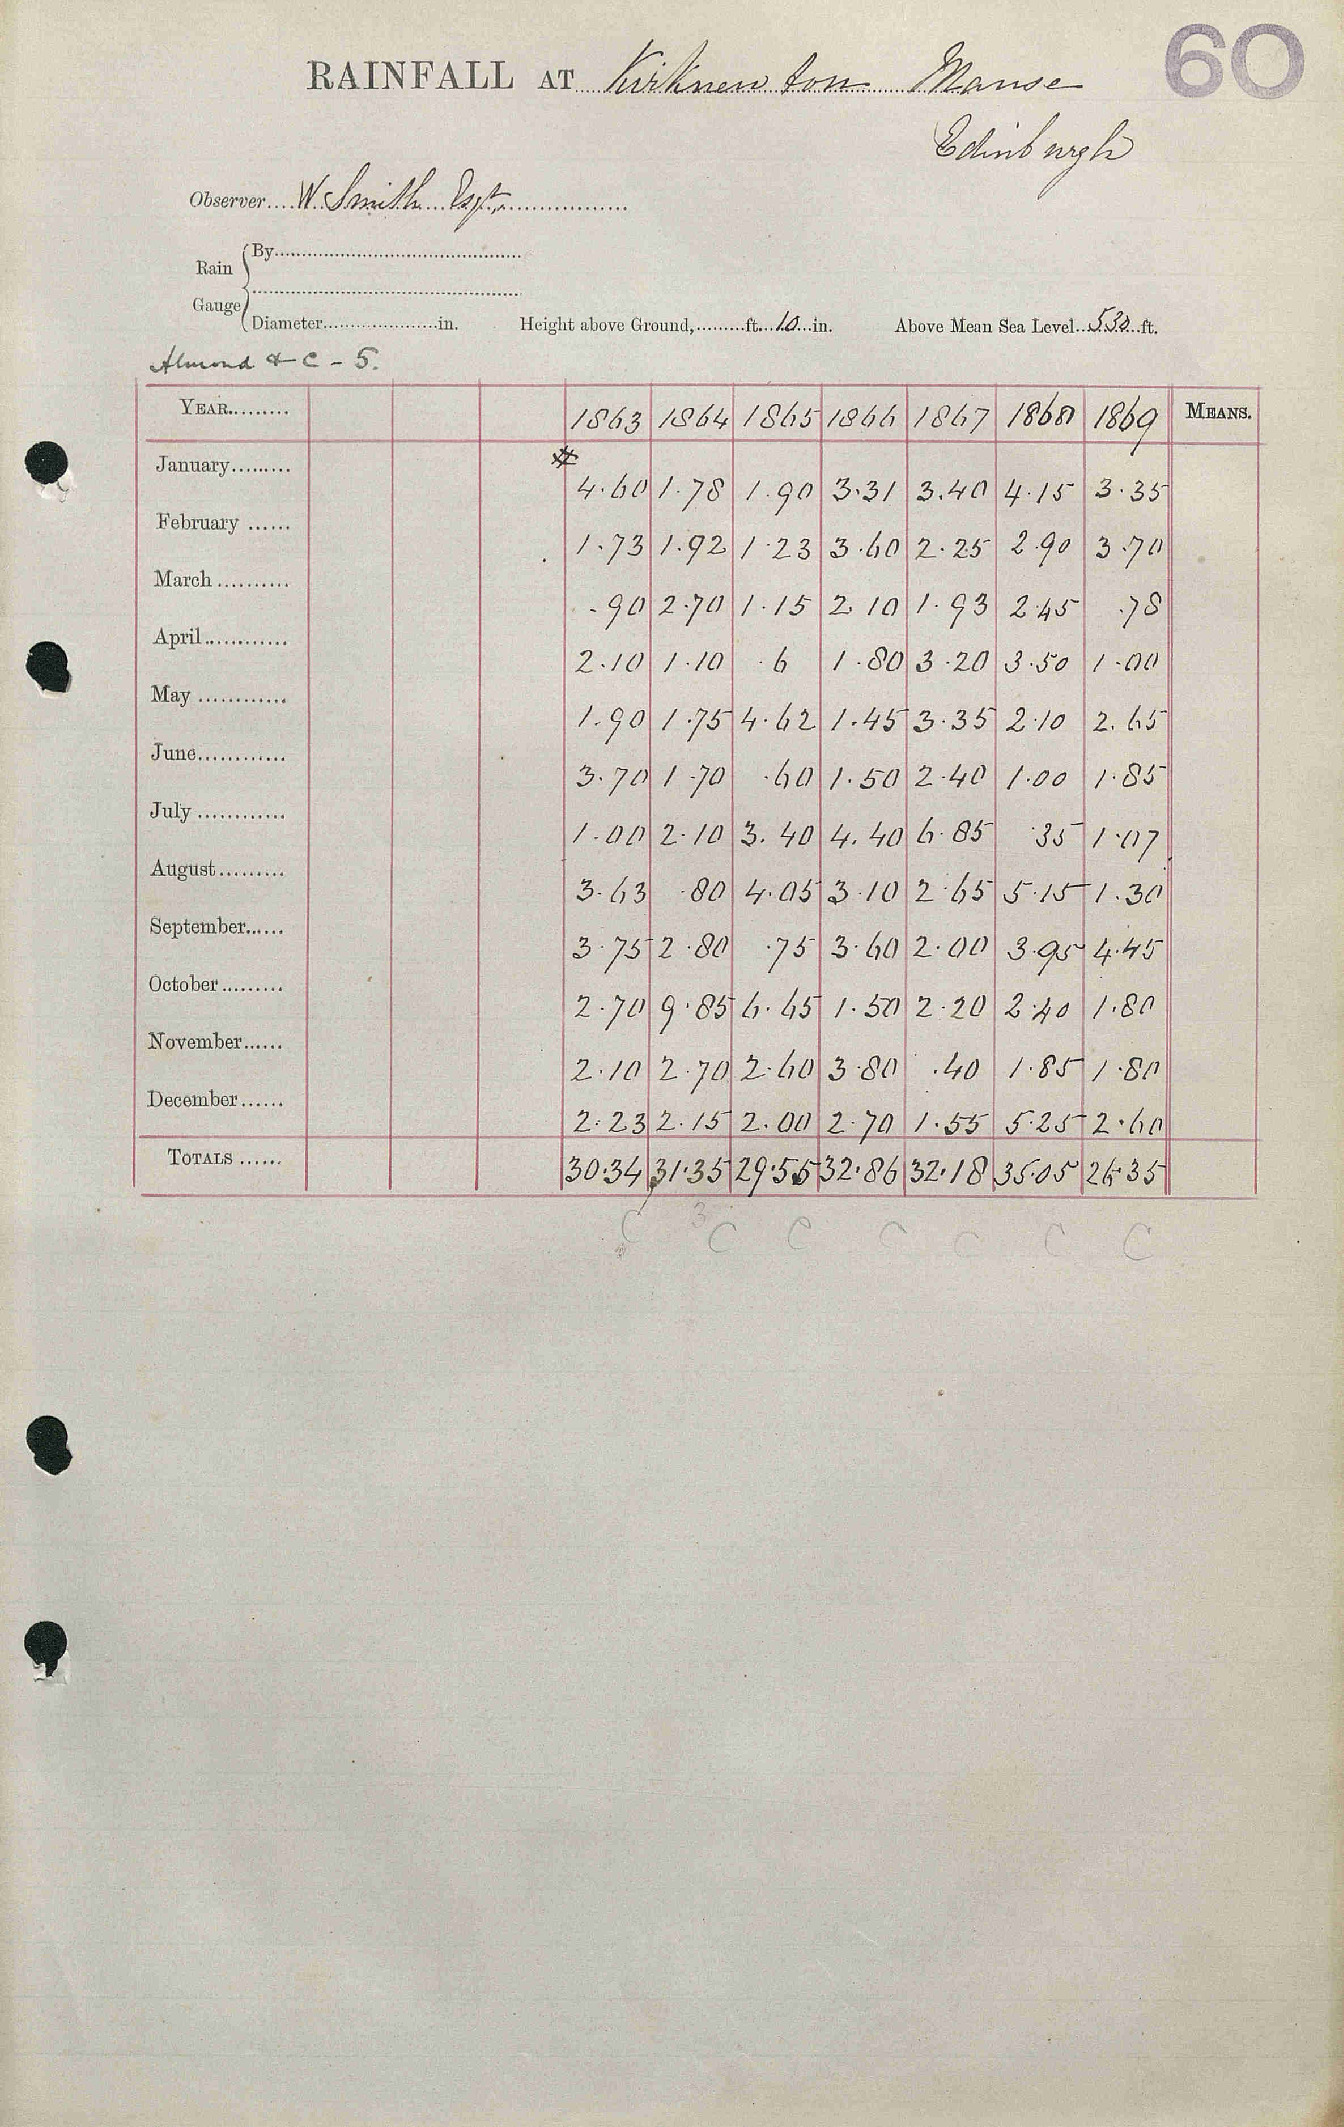 60
RAINFALL AT Kirknewton Manse
Edinburgh
Observer.... W. Smith Esqr.
Rain Gauge { By
Diameter in. Height above Ground, ft. 10 in. Above Mean Sea Level 530 ft.
Almond & C - 5.
YEAR 1863 1864 1865 1866 1867 1868 1869 MEANS.
#
January 4.60 1.78 1.90 3.31 3.40 4.15 3.35
February 1.73 1.92 1.23 3.60 2.25 2.90 3.70
March .90 2.70 1.15 2.10 1.93 2.45 .78
April 2.10 1.10 .6 1.80 3.20 3.50 1.00
May 1.90 1.75 4.62 1.45 3.35 2.10 2.65
June 3.70 1.70 .60 1.50 2.40 1.00 1.85
July 1.00 2.10 3.40 4.40 6.85 .35 1.07
August 3.63 .80 4.05 3.10 2.65 5.15 1.30
September 3.75 2.80 .75 3.60 2.00 3.95 4.45
October 2.70 9.85 6.65 1.50 2.20 2.40 1.80
November 2.10 2.70 2.60 3.80 .40 1.85 1.80
December 2.23 2.15 2.00 2.70 1.55 5.25 2.60
TOTALS 30.34 31.35 29.55 32.86 32.18 35.05 26.35
C 3 C C C C C C